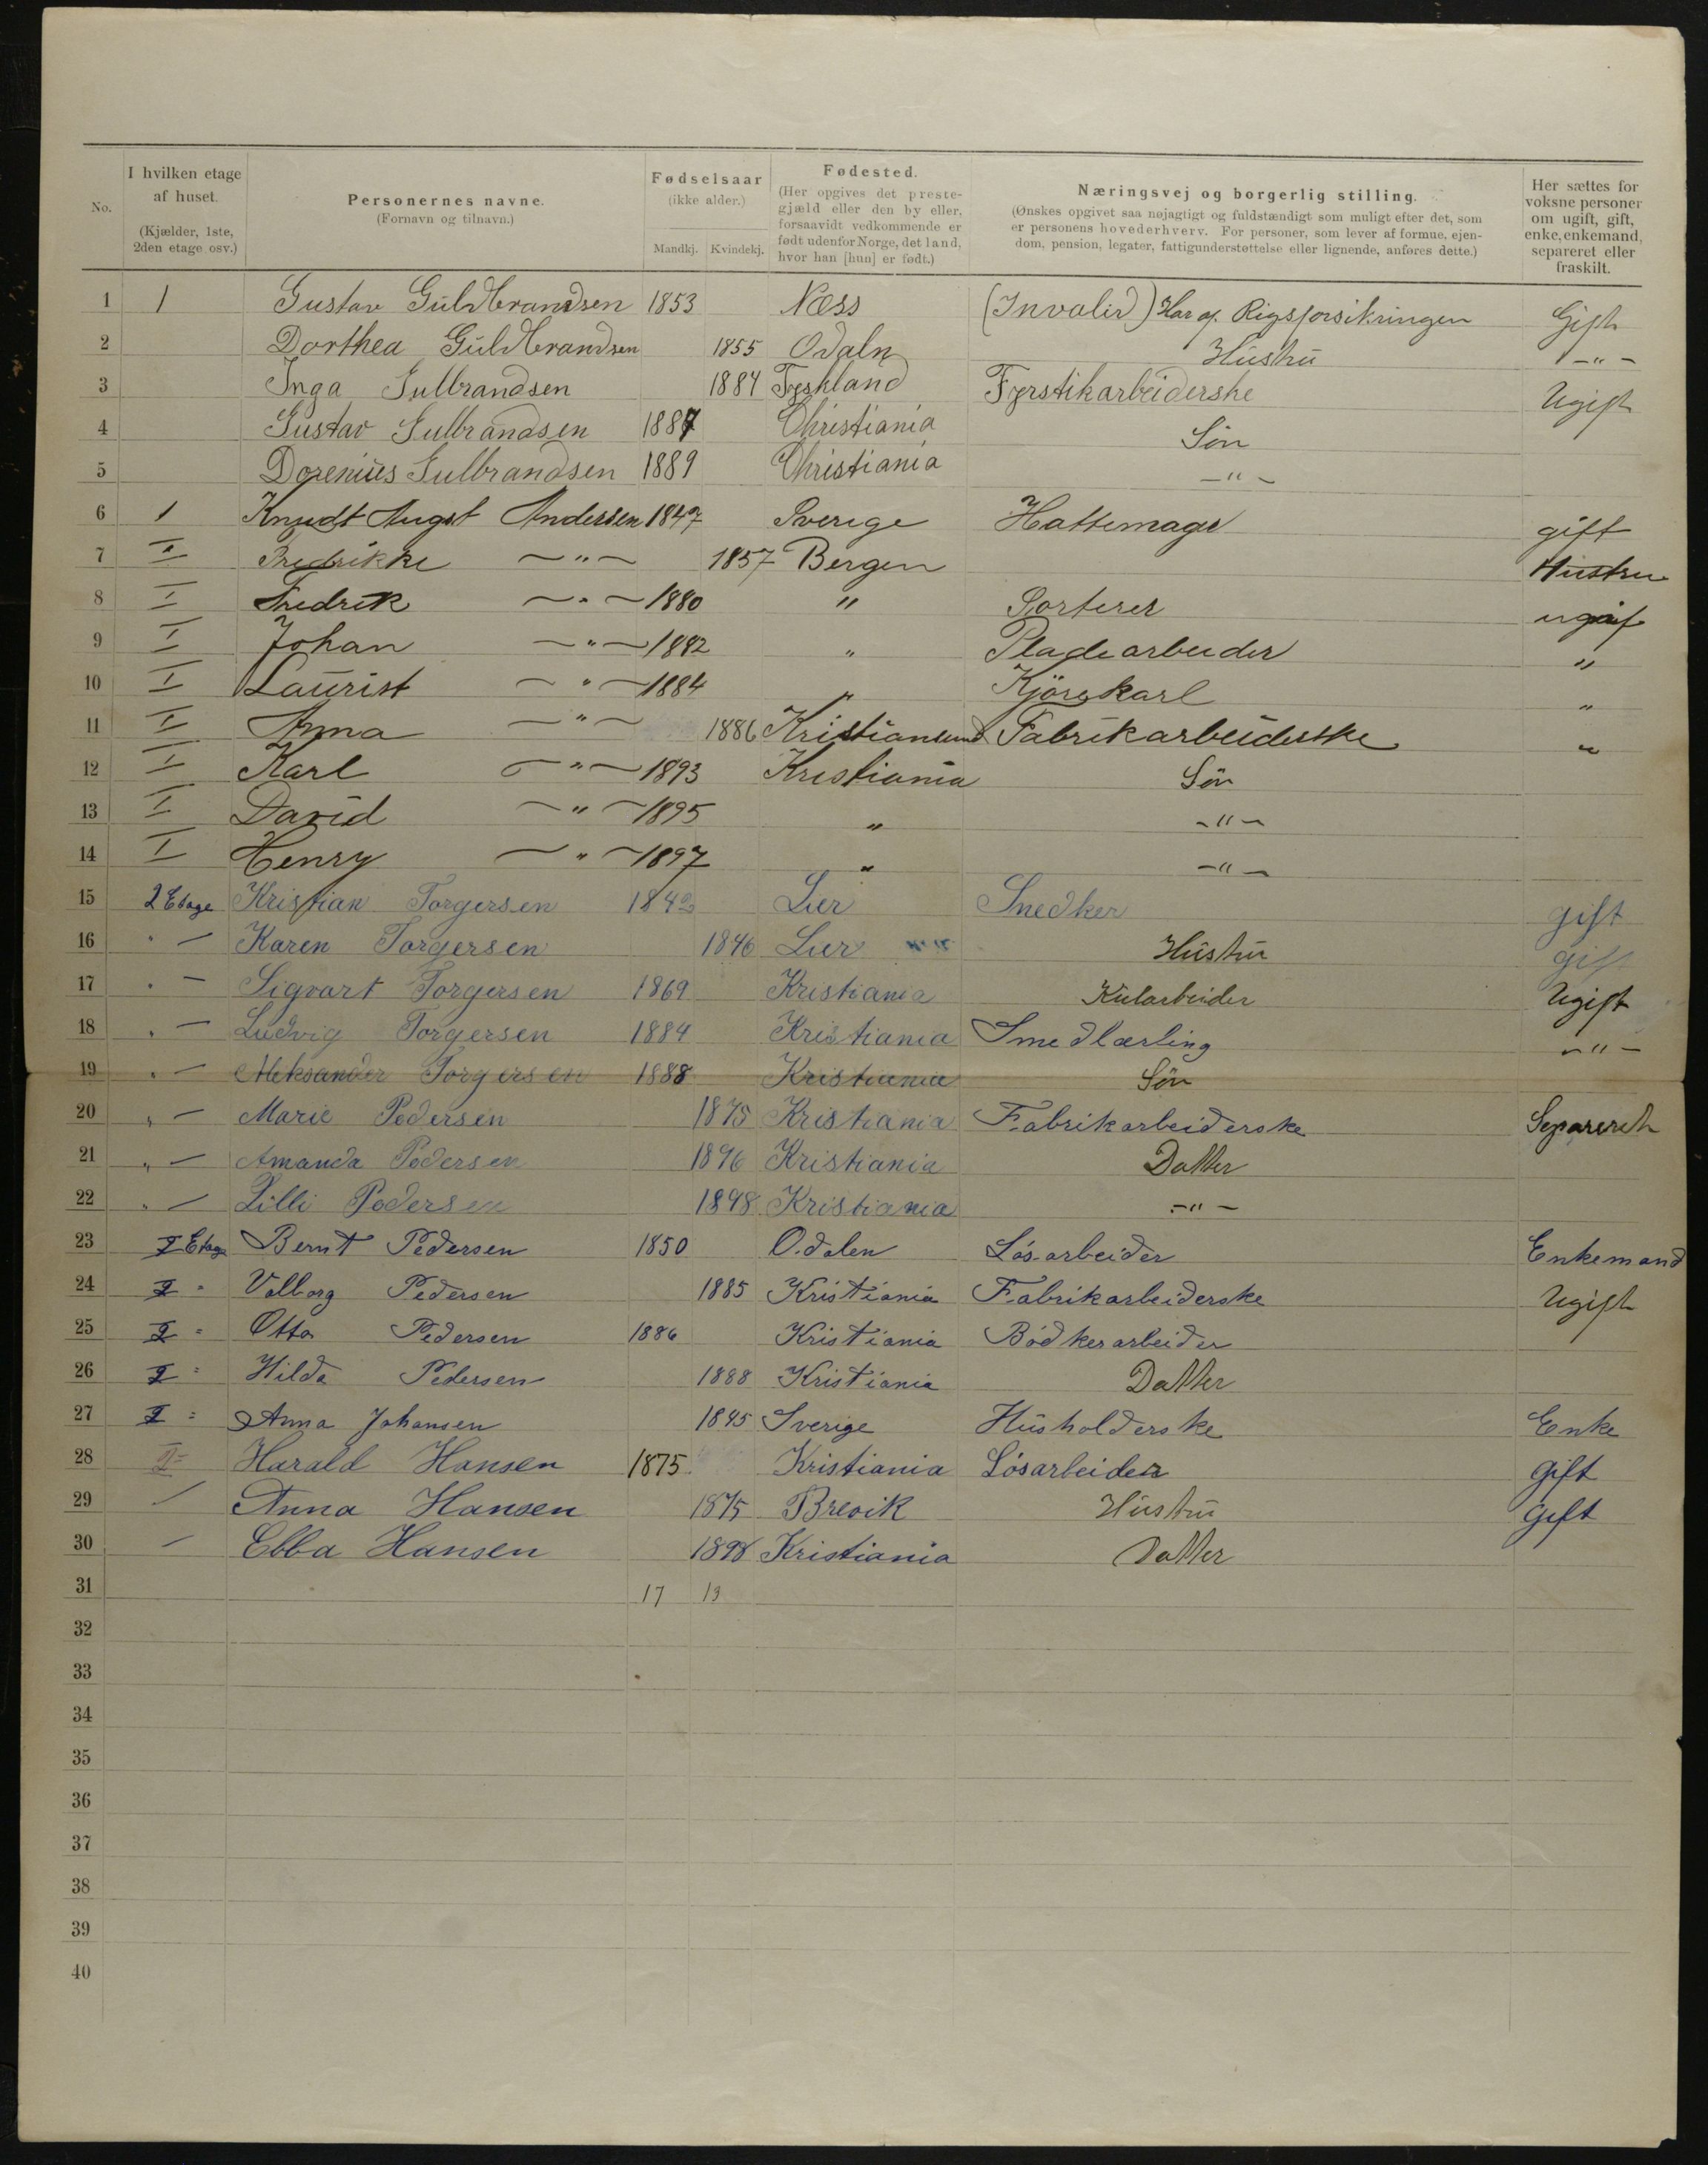 No. | I hvilken etage af huset. (Kjælder, 1ste, 2den etage osv.) | Personernes navne. (Fornavn og tilnavn.) | Fødselsaar (ikke alder.) Mandkj. Kvindekj. | Fødested. (Her opgives det prestegjæld eller den by eller, forsaavidt vedkommende er født udenfor Norge, det land, hvor han [hun] er født.) | Næringsvej og borgerlig stilling. (Ønskes opgivet saa nøjagtigt og fuldstændigt som muligt efter det, som er personens hovederhverv. For personer, som lever af formue, ejendom, pension, legater, fattigunderstøttelse eller lignende, anføres dette.) | Her sættes for voksne personer om ugift, gift, enke, enkemand, separeret eller fraskilt.
1 1 Gustav Guldbrandsen 1853 Næss (Invalid) Har af Rigsforsikringen Gift
2 Dorthea Guldbrandsen 1855 Odaln Hustru -"-
3 Inga Gulbrandsen 1884 Tyskland Fyrstikarbeiderske Ugift
4 Gustav Gulbrandsen 1887 Christiania Søn
5 Dorenius Gulbrandsen 1889 Christiania -"-
6 1 Knudt Augst Andersen 1847 Sverige Hattemager gift
7 I Fredrikke -"- 1857 Bergen Hustru
8 I Fredrik -"- 1880 " Sorterer ugift
9 I Johan -"- 1882 " Pladearbeider "
10 I Laurist -"- 1884 " Kjørekarl "
11 I Anna -"- 1886 Kristiansund Fabrikarbeiderske "
12 I Karl -"- 1893 Kristiania Søn
13 I David -"- 1895 " -"-
14 I Henry -"- 1897 " -"-
15 2 Etage Kristian Torgersen 1842 Lier Snedker gift
16 " - Karen Torgersen 1846 Lier Hustru gift
17 " - Sigvart Torgersen 1869 Kristiania Kularbeider Ugift
18 " - Ludvig Torgersen 1884 Kristiania Smedlærling -"-
19 " - Aleksander Torgersen 1888 Kristiania Søn
20 " - Marie Pedersen 1875 Kristiania Fabrikarbeiderske Separeret
21 " - Amanda Pedersen 1896 Kristiania Datter
22 " - Lilli Pedersen 1898 Kristiania -"-
23 2 Etage Bernt Pedersen 1850 Odalen Løsarbeider Enkemand
24 2 " Valborg Pedersen 1885 Kristiania Fabrikarbeiderske Ugift
25 2 " Otto Pedersen 1886 Kristiania Bødkerarbeider
26 2 " Hilda Pedersen 1888 Kristiania Datter
27 2 " Anna Johansen 1845 Sverige Husholderske Enke
28 2 " Harald Hansen 1875 Kristiania Løsarbeider gift
29 - Anna Hansen 1875 Brevik Hustru gift
30 - Ebba Hansen 1898 Kristiania Datter
31 17 13
32
33
34
35
36
37
38
39
40